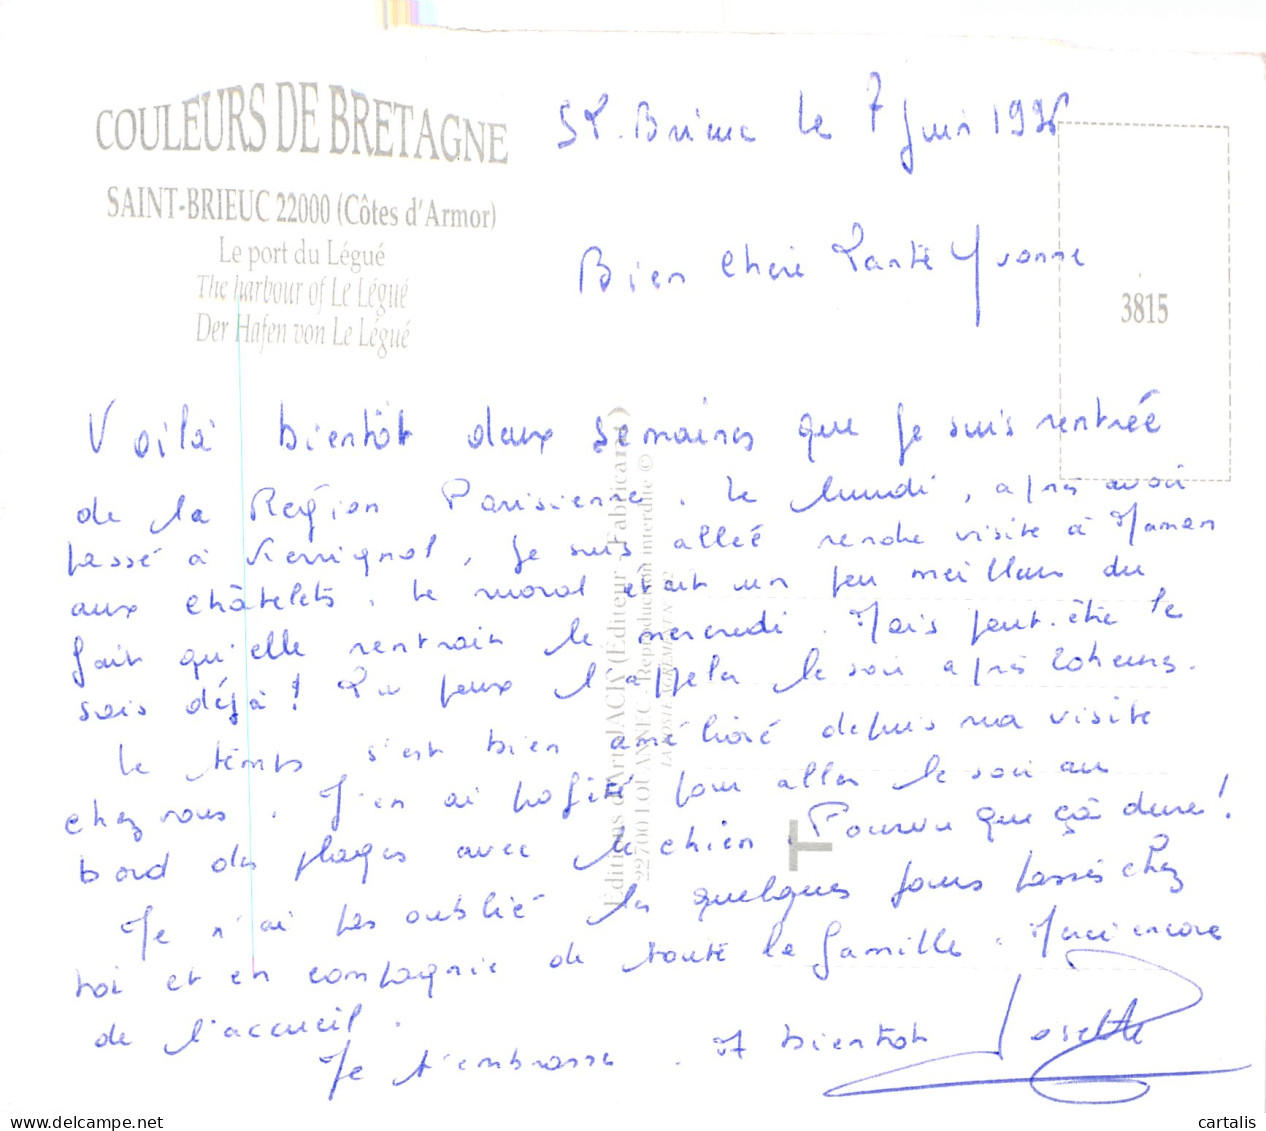 COULEURS DE BRETAGNE
SAINT-BRIEUC 22000 (Côtes d'Armor)
Le port du Légué
The harbour of Le Légué
Der Hafen von Le Légué
St. Brieuc le 7 Juin
Bien Chère Tante Yvonne
3815
Voilà bientôt deux semaines que je suis rentrée
de la Région Parisienne. Le lundi, après avoir
passé à, je suis allée rendre visite à Maman
aux châtelets. Le moral était un peu meilleur du
fait qu'elle rentrait le mercredi. Mais peut-être le
sais déjà! Tu peux l'appeler le soir après 20heures.
Le temps s'est bien amélioré depuis ma visite
chez vous. J'en ai profité pour aller le soir au
bord des plages avec le chien. Pourvu que çà dure!
Je n'ai pas oublié les quelques jours passés chez
toi et en compagnie de toute la famille. Merci encore
de l'accueil.
Je t'embrasse. A bientôt Josette
Editions d'Art JACK (Éditeur - Fabricant)
22700 LOUANNEC - Reproduction interdite ©
cartalis